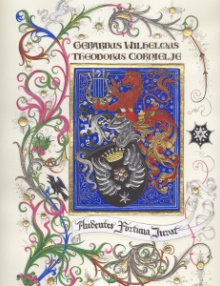 Gerardus Wilhelmus
Theodorus Cordielje
Audentes Fortuna Iuvat